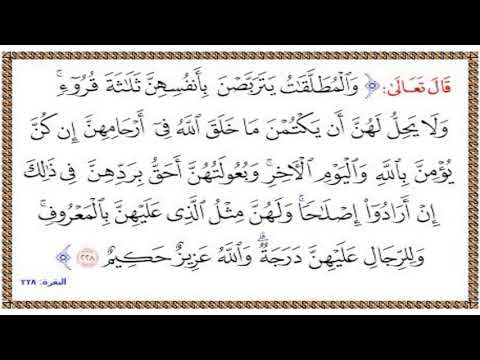 قَالَ تَعَالَىٰ: ﴿ وَٱلْمُطَلَّقَٰتُ يَتَرَبَّصْنَ بِأَنفُسِهِنَّ ثَلَٰثَةَ قُرُوٓءٍ ۚ
وَلَا يَحِلُّ لَهُنَّ أَن يَكْتُمْنَ مَا خَلَقَ ٱللَّهُ فِىٓ أَرْحَامِهِنَّ إِن كُنَّ
يُؤْمِنَّ بِٱللَّهِ وَٱلْيَوْمِ ٱلْـَٔاخِرِ ۚ وَبُعُولَتُهُنَّ أَحَقُّ بِرَدِّهِنَّ فِى ذَٰلِكَ
إِنْ أَرَادُوٓا۟ إِصْلَٰحًا ۚ وَلَهُنَّ مِثْلُ ٱلَّذِى عَلَيْهِنَّ بِٱلْمَعْرُوفِ ۚ
وَلِلرِّجَالِ عَلَيْهِنَّ دَرَجَةٌ ۗ وَٱللَّهُ عَزِيزٌ حَكِيمٌ ٢٢٨ ﴾
البقرة: ٢٢٨